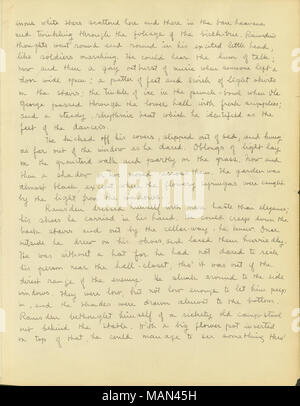 more white stars scattered here and there in the bare heavens
and twinkling through the foliage of the birch-tree. Ramsden's
thoughts went round and round in his excited little head,
like soldiers marching. He could hear the hum of talk;
now and then a gay outburst of music when someone left a
door wide open; a patter of feet and swish of light skirts
on the stairs; the tinkle of ice in the punch-bowl when Ole
George passed through the lower hall with fresh supplies;
and a steady, rhythmic beat which he identified as the
feet of the dancers.
He kicked off his covers, slipped out of bed, and hung
as far out of the window as he dared. Oblongs of light lay
on the graveled walk and partly on the grass; now and
then a shadow or two moved across them. The garden was
almost black except where the flowery syringas were caught
by the light from the windows.
Ramsden dressed himself with more haste than elegance;
his shoes he carried in his hand. He could creep down the
back stairs and out by the cellar-way, he knew. Once
outside he drew on his shoes, and laced them hurriedly.
He was without a hat for he had not dared to seek
his person near the hall-closet; that was out of the
direct range of the enemy. He slunk around to the side
windows. They were low, but not low enough to let him peep
in, and the shades were drawn almost to the bottom.
Ramsden bethought himself of a rickety old camp-stool
out behind the stable. With a big flower pot inverted
on top of that he could manage to see something thro'
alamy
Image ID: MAN45H
www.alamy.com